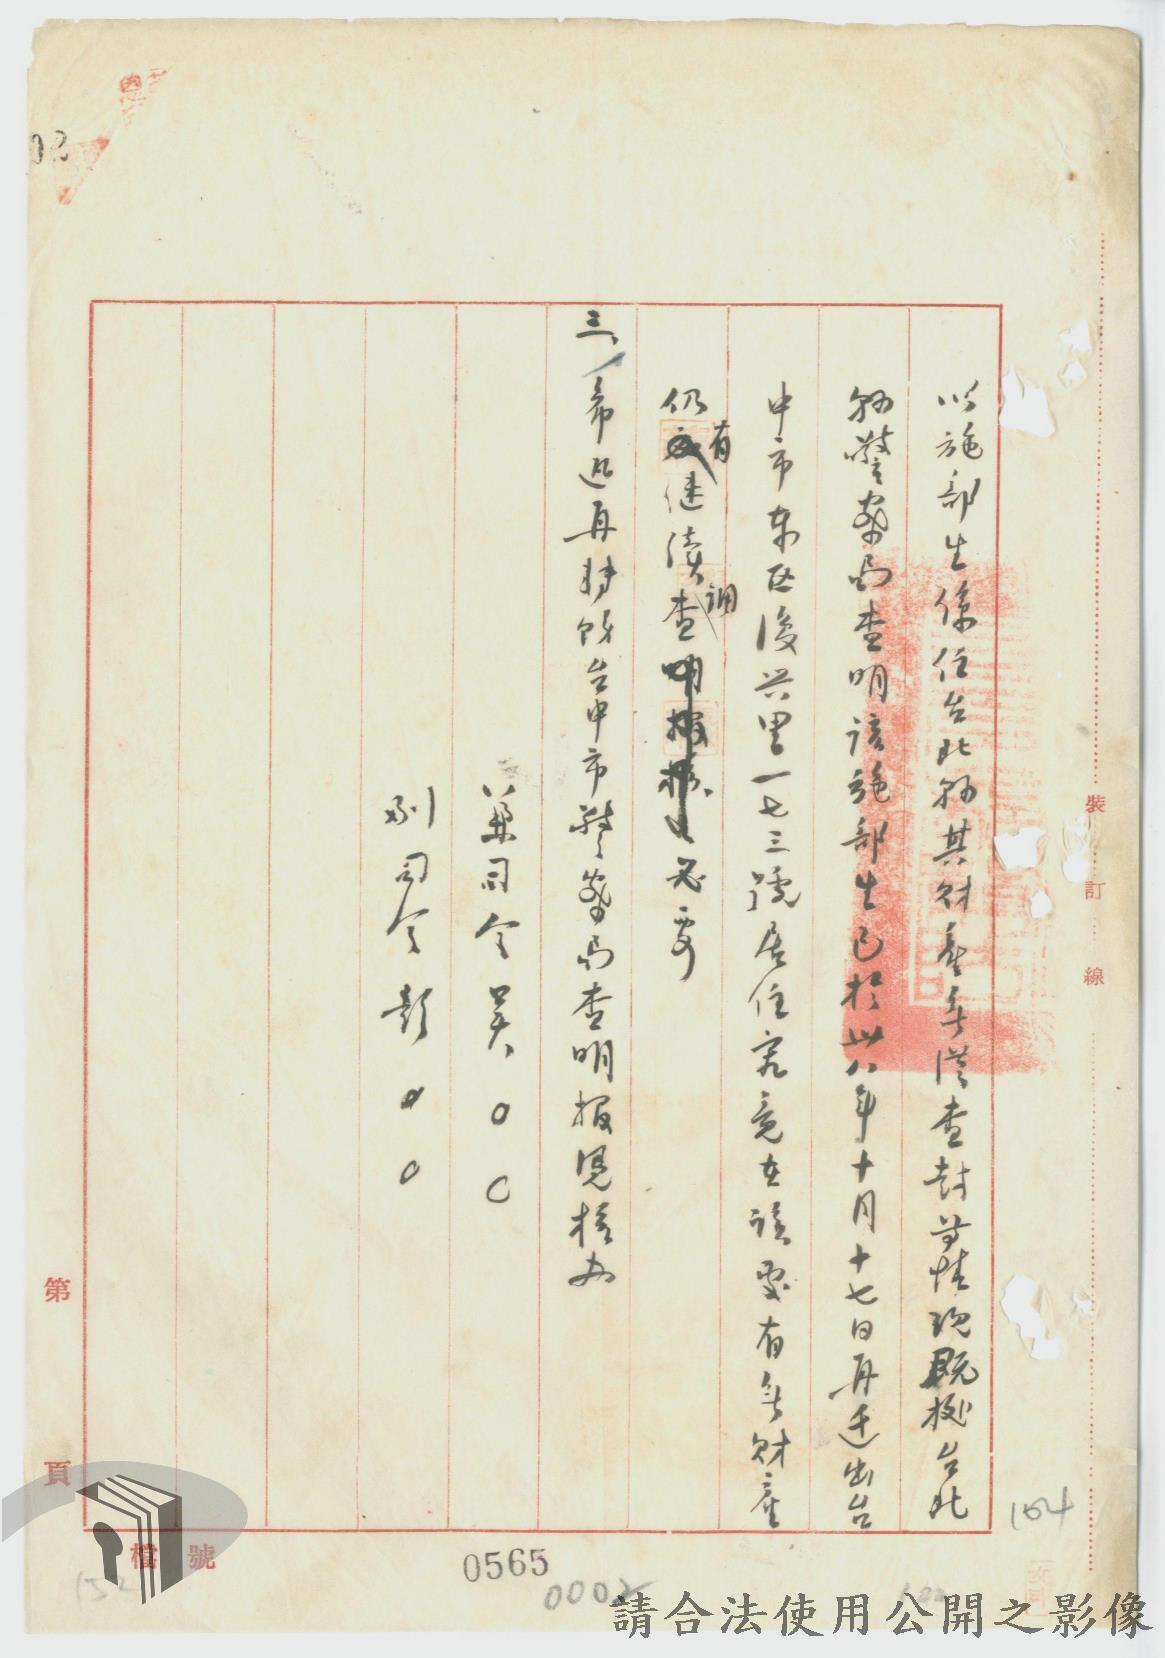 以施部生係住台北縣其財產無從查封等情現既據台北
縣警察局查明該施部生已於卅八年十月十七日再遷出台
中市東区後兴里一七三號居住究竟在該處有無財產
仍有継續調查必要
三、希迅再轉飭台中市警察局查明報凴核办
兼司令吴〇〇
副司令彭〇〇
裝訂線
第頁
檔號
0565
0002
154
02
請合法使用公開之影像